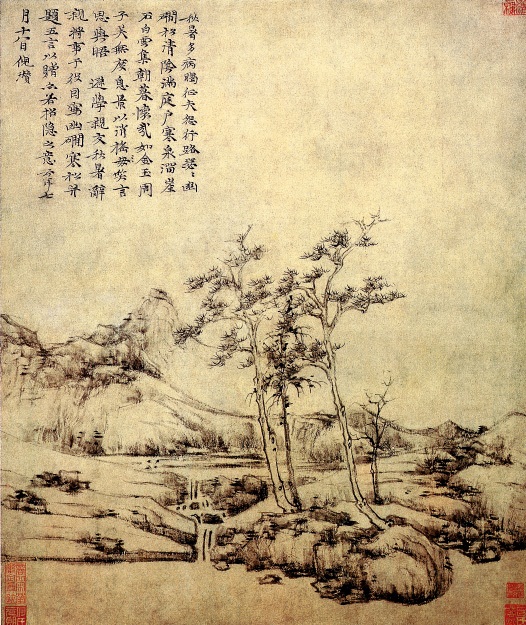 秋暑多病暍征夫怨行路瑟〻幽
磵松清陰滿庭戶寒泉溜崖
石白雲集朝暮懷哉如金玉周
子美無度息景以消搖笑言
思與晤 遜學親友秋暑辭
親將事于役因寫幽磵寒松并
題五言以贈亦若招隱之意云耳七
月十八日倪瓚